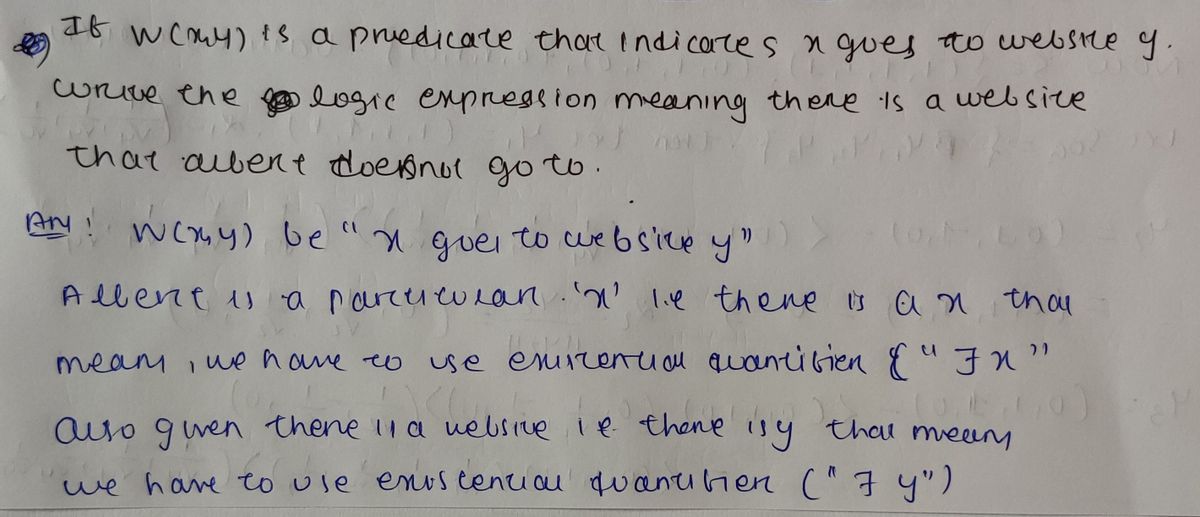 If W(x,y) is a predicate that indicates x goes to website y.
write the logic expression meaning there is a website
that albert doesnot go to.
Ans: W(x,y) be "x goes to website y"
Albert is a particular 'x' i.e there is a x that
means, we have to use existential quantifier {"∃x"
also given there is a website i.e. there is y that means
we have to use existential quantifier ("∃y")